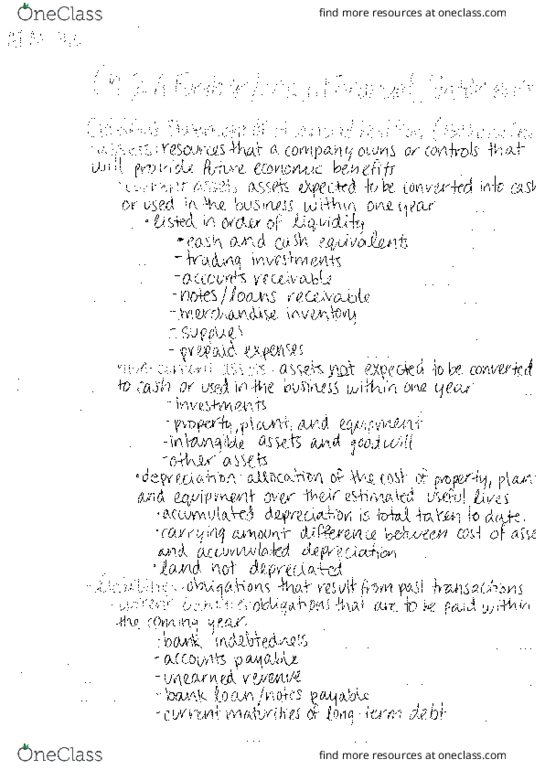 OneClass
find more resources at oneclass.com
assets: resources that a company owns or controls that
will provide future economic benefits
current assets: assets expected to be converted into cash
or used in the business within one year
• listed in order of liquidity
• cash and cash equivalents
- trading investments
- accounts receivable
- notes/loans receivable
- merchandise inventory
- supplies
- prepaid expenses
non-current assets - assets not expected to be converted
to cash or used in the business within one year
- investments
- property, plant, and equipment
- intangible assets and goodwill
- other assets
• depreciation: allocation of the cost of property, plan
and equipment over their estimated useful lives
• accumulated depreciation is total taken to date.
• carrying amount difference between cost of asse
and accumulated depreciation
• land not depreciated
- liabilities - obligations that result from past transactions
- current liabilities: obligations that are to be paid within
the coming year.
- bank indebtedness
- accounts payable
- unearned revenue
- bank loan/notes payable
- current maturities of long-term debt
OneClass
find more resources at oneclass.com